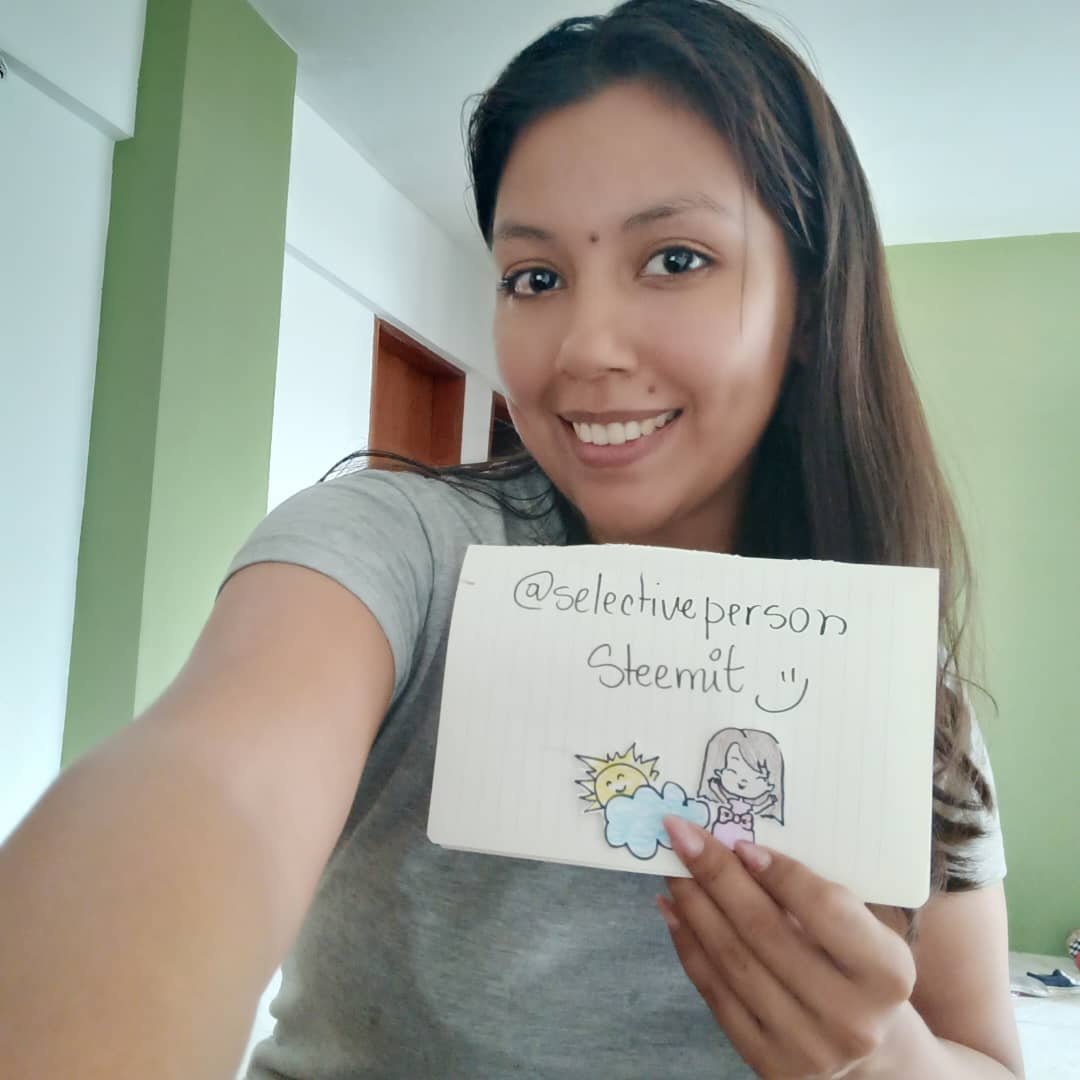 @selectiveperson
Steemit